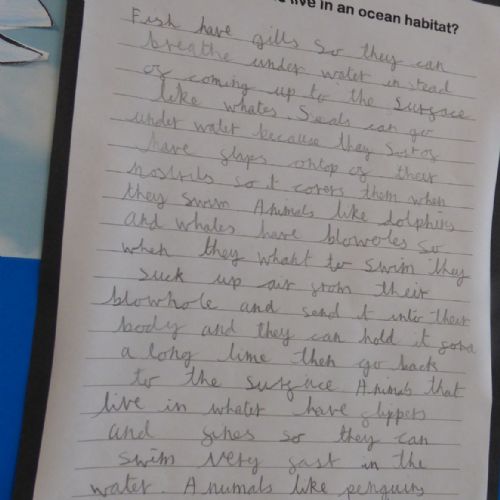 live in an ocean habitat?
Fish have gills so they can
breathe under water in stead
of coming up to the surface
like whales. Seals can go
under water because they sort of
have flaps ontop of their
nostrils so it covers them when
they swim Animals like dolphins
and whales have blowoles so
when they whant to swim they
suck up air from their
blowhole and send it into their
body and they can hold it for a
a long time then go back
to the surface Animals that
live in whater have flippers
and fines so they can
swim very fast in the
water. Animals like penguins